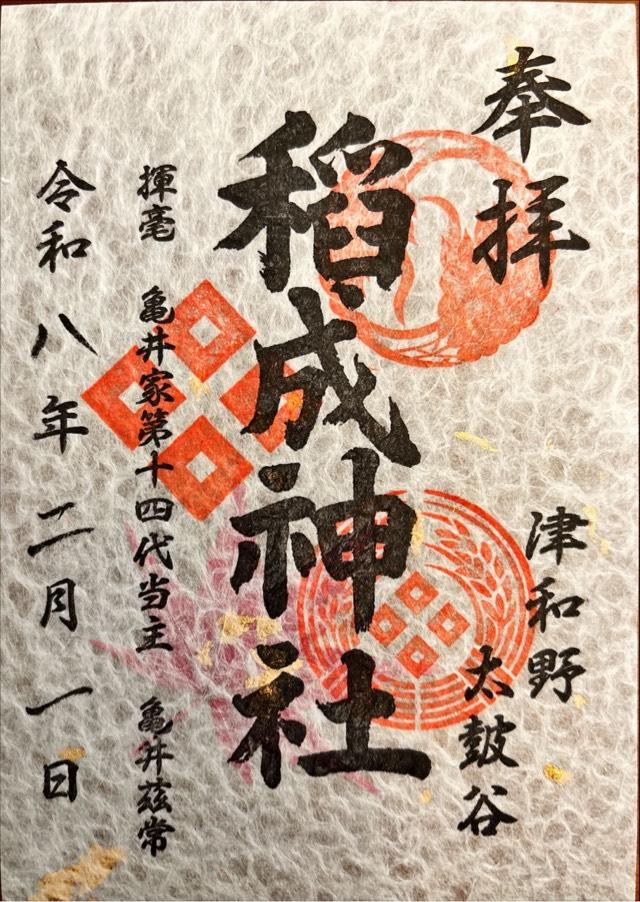 奉拝
津和野
太皷谷
稲成神社
揮毫 亀井家第十四代当主 亀井茲常
令和八年二月一日